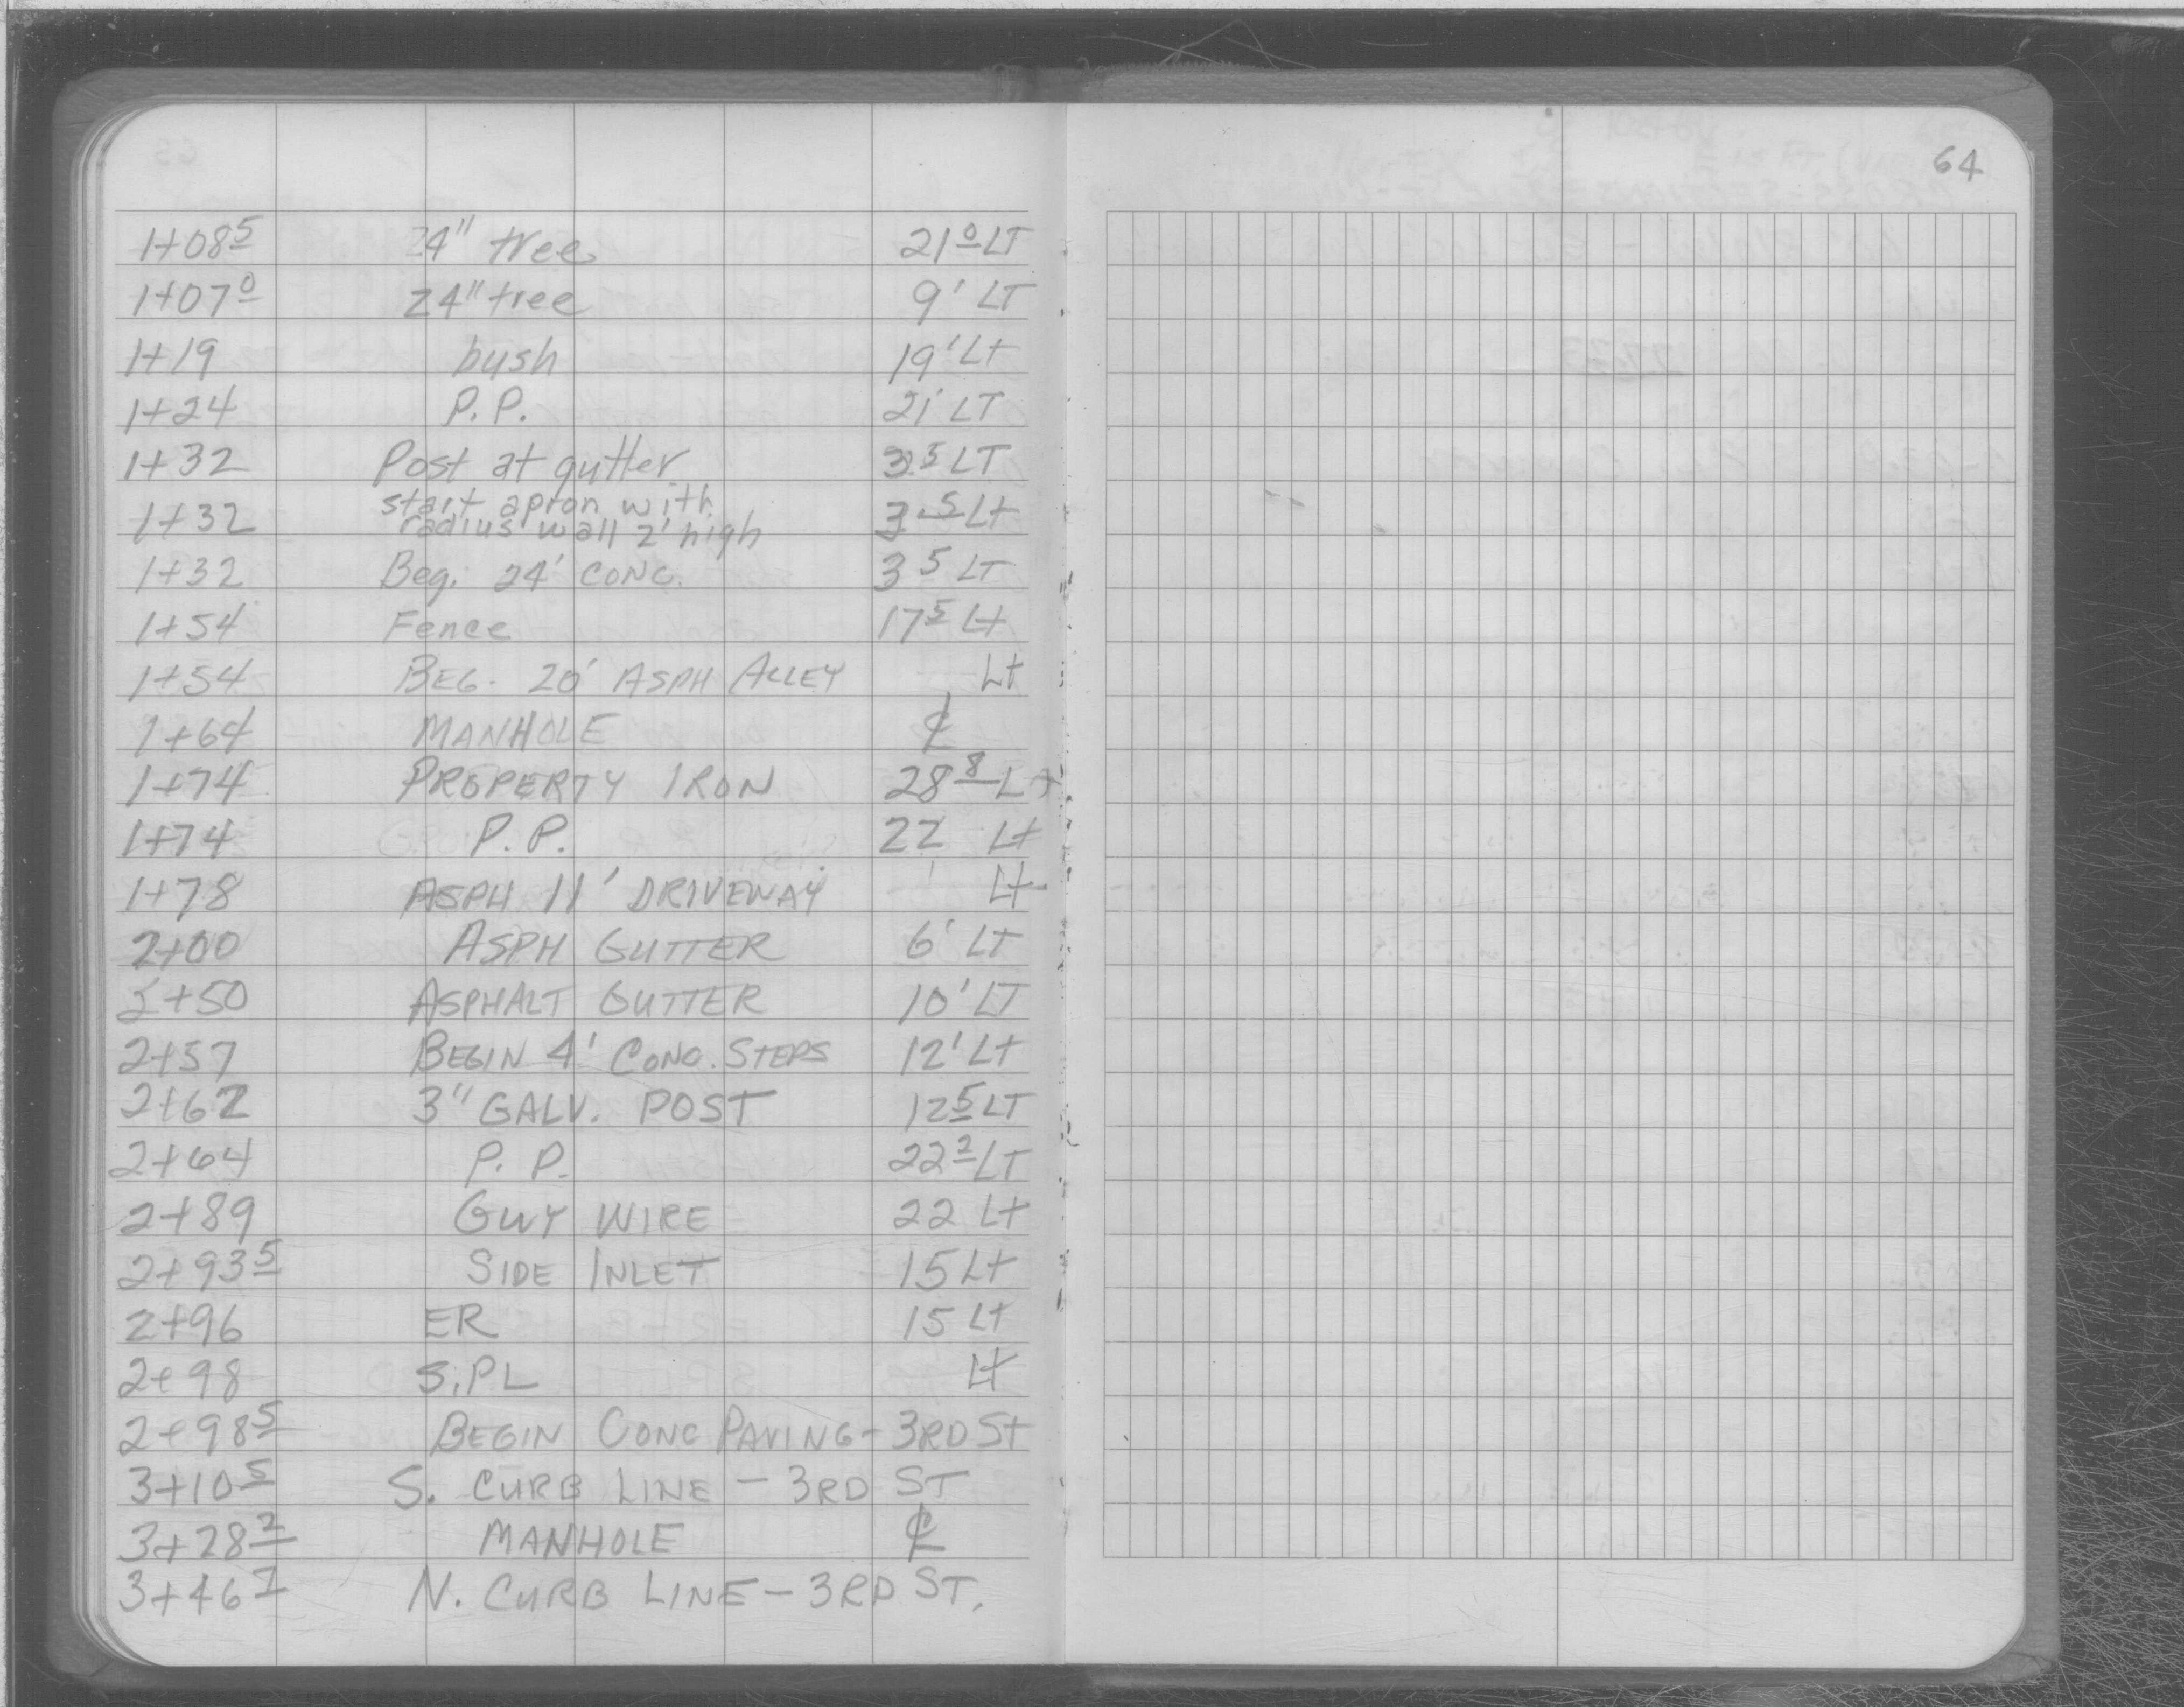 64
1+08⁵ 24" tree 21⁰ LT
1+07⁰ 24" tree 9' LT
1+19 bush 19' Lt
1+24 P.P. 21' LT
1+32 Post at gutter 3.5 LT
1+32 start apron with radius wall 2' high 3.5 Lt
1+32 Beg. 24' CONC. 3⁵ LT
1+54 Fence 17⁵ Lt
1+54 BEG. 20' ASPH ALLEY Lt
1+64 MANHOLE ℄
1+74 PROPERTY IRON 28⁸ Lt
1+74 P.P. 22 Lt
1+78 ASPH 11' DRIVEWAY Lt
2+00 ASPH GUTTER 6' LT
2+50 ASPHALT GUTTER 10' LT
2+57 BEGIN 4' CONC. STEPS 12' Lt
2+62 3" GALV. POST 12⁵ LT
2+64 P.P. 22² LT
2+89 GUY WIRE 22 Lt
2+93⁵ SIDE INLET 15 Lt
2+96 ER 15 Lt
2+98 S.PL Lt
2+98⁵ BEGIN CONC PAVING - 3RD St
3+10⁵ S. CURB LINE - 3RD ST
3+28² MANHOLE ℄
3+46⁷ N. CURB LINE - 3RD ST.